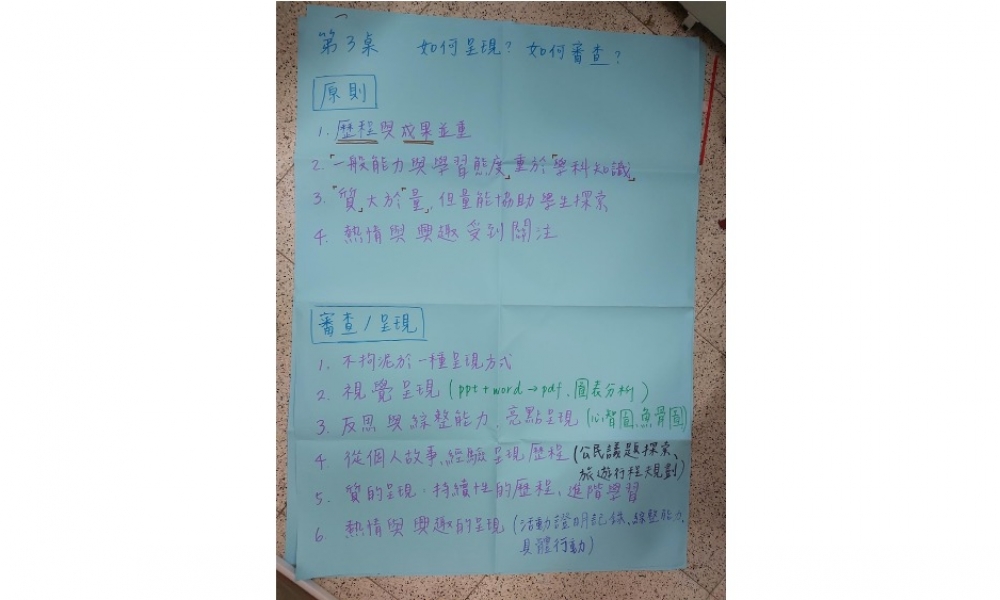 第3桌 如何呈現? 如何審查?
原則
1. 歷程與成果並重
2.「一般能力與學習態度」重於「學科知識」
3.「質」大於「量」,但量能協助學生探索
4. 熱情與興趣受到關注
審查/呈現
1. 不拘泥於一種呈現方式
2. 視覺呈現(ppt+word→pdf、圖表分析)
3. 反思與綜整能力、亮點呈現(心智圖、魚骨圖)
4. 從個人故事、經驗呈現歷程(公民議題探索、
旅遊行程規劃)
5. 質的呈現:持續性的歷程、進階學習
6 熱情與興趣的呈現(活動證明記錄、綜整能力、
具體行動)